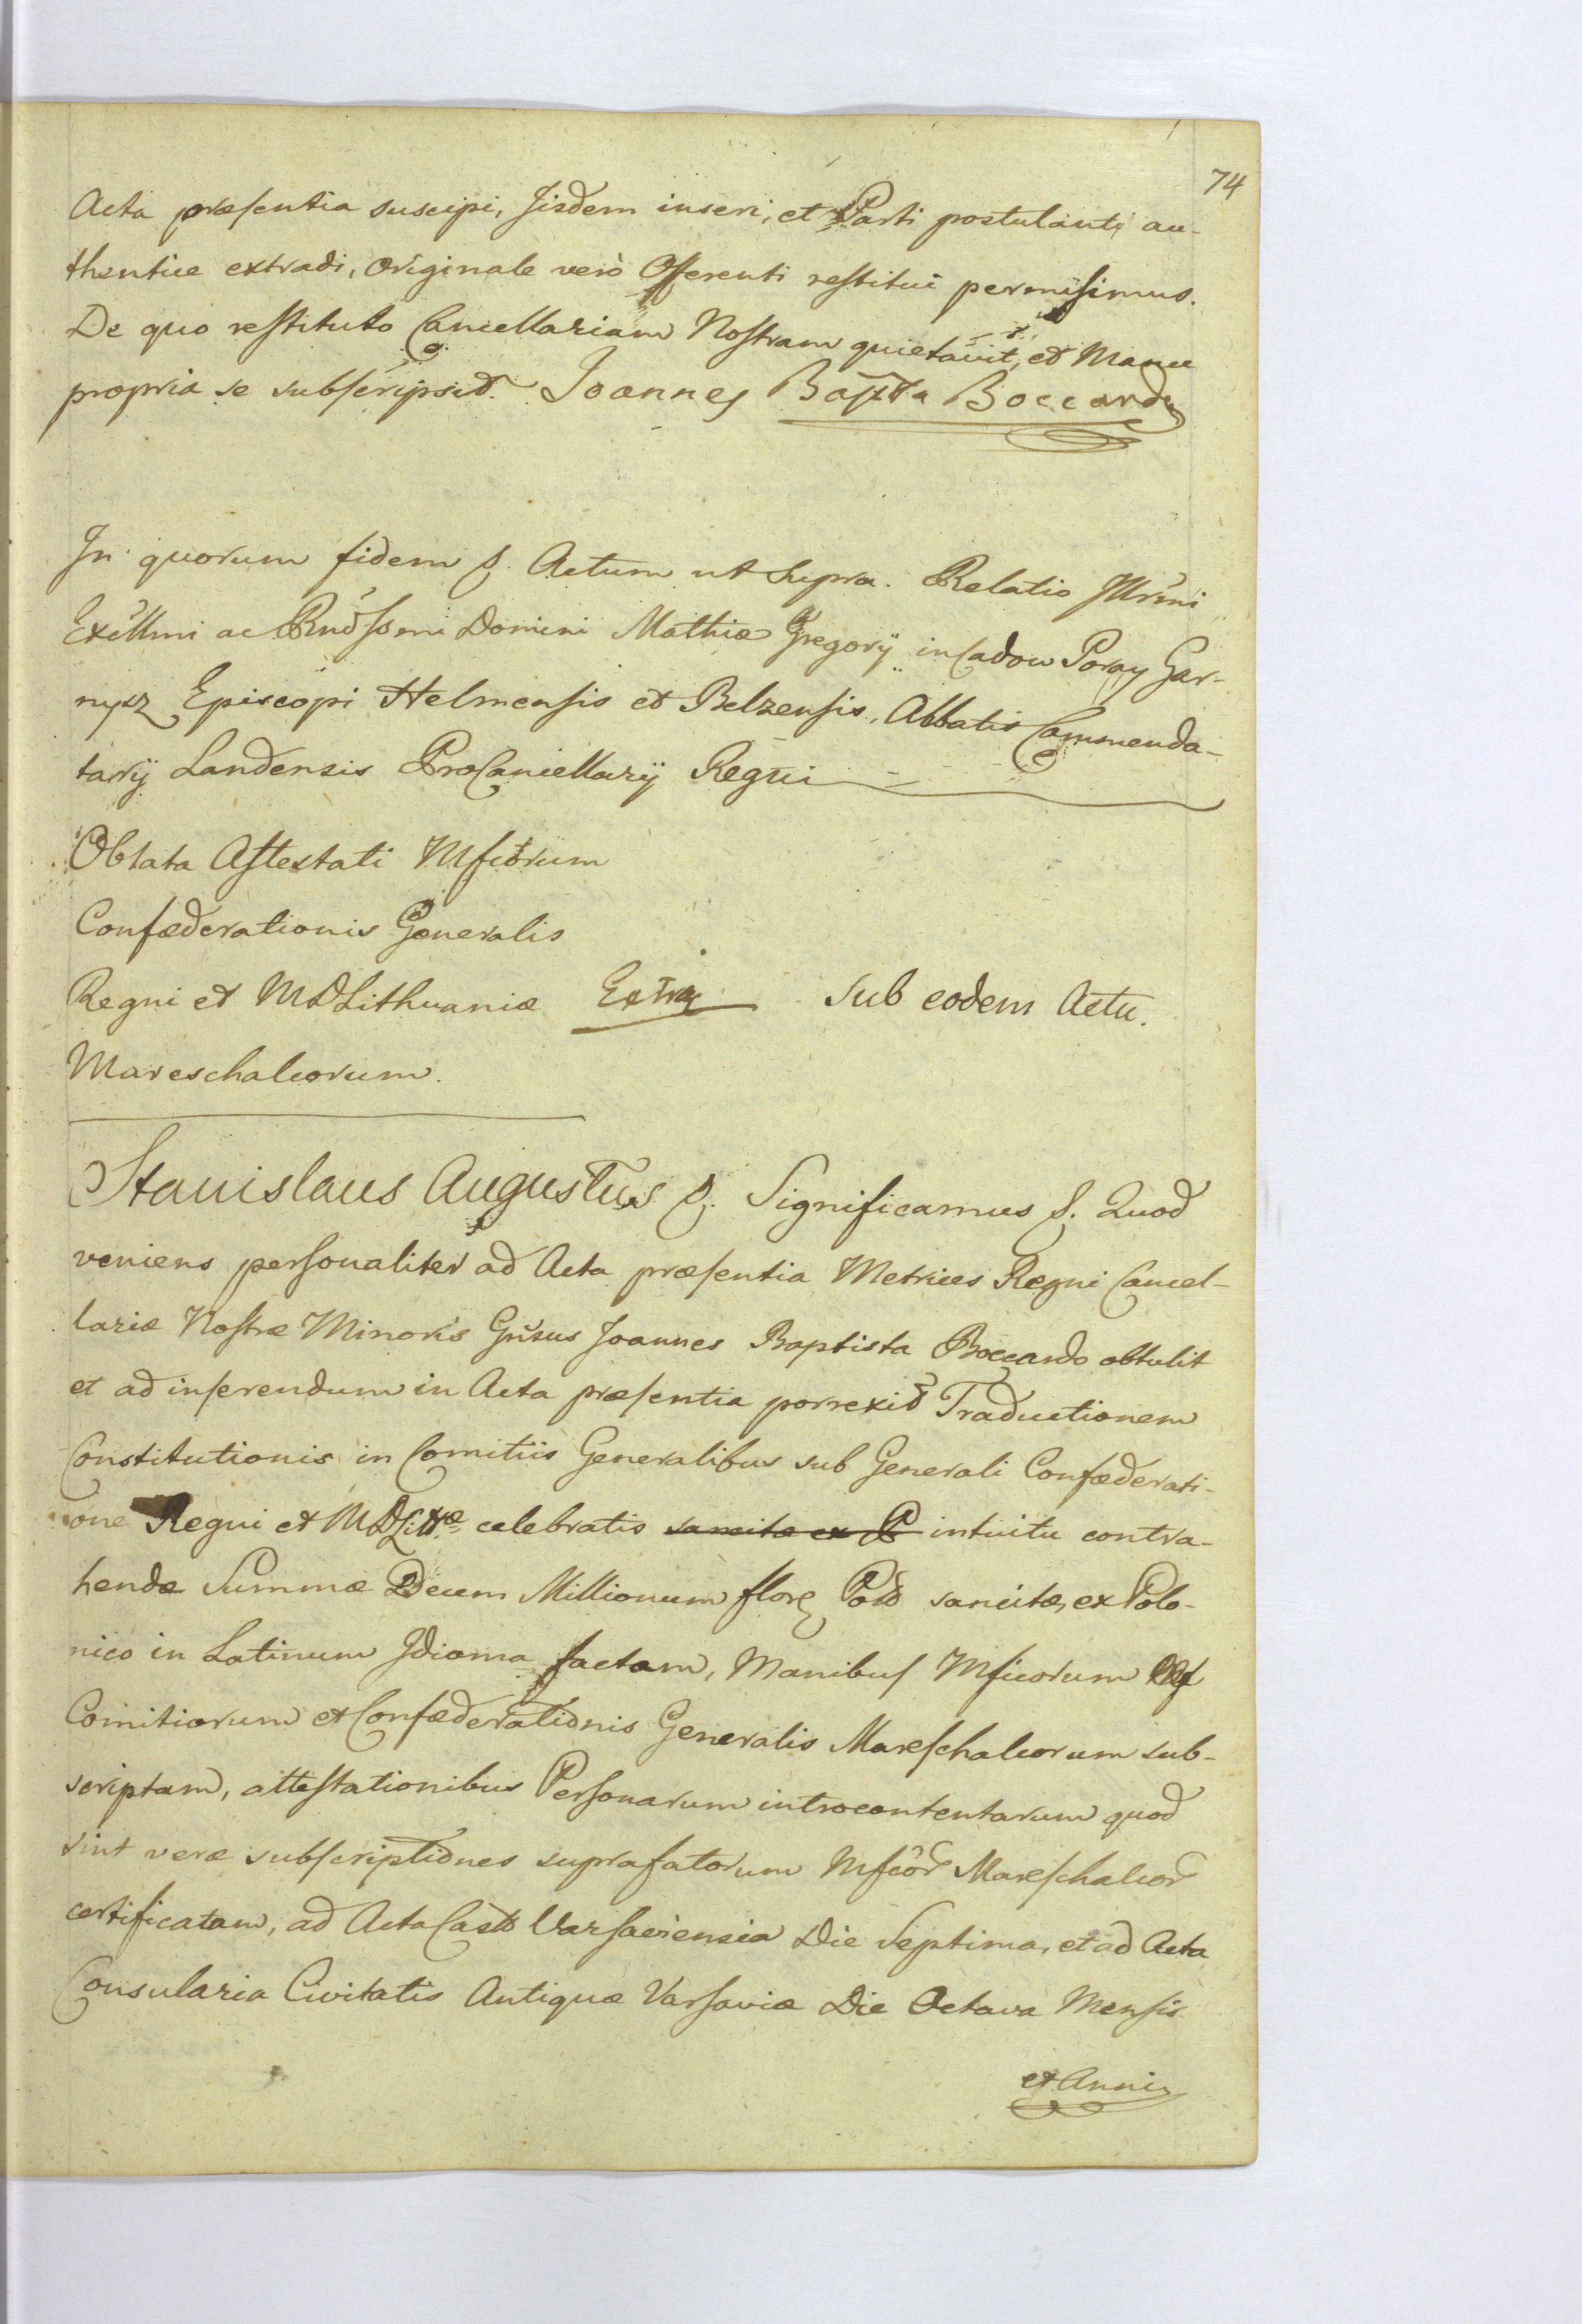 74
Acta præsentia suscipi, Jisdem inseri, et Parti postulanti au-
thentice extradi, Originale verò Offerenti restitui permisimus.
De quo restituto Cancellariam Nostram quietavit, et Manu
propria se subscripsit. Joannes Baptta Boccardo
In quorum fidem &. Actum ut supra. Relatio Illrmi
Excllmi ac Rndssmi Domini Mathiæ Gregorij in Cadow Poray Gar-
nysz Episcopi Helmensis et Belzensis, Abbatis Commenda-
tarij Landensis ProCancellarij Regni
Oblata Attestati Mficorum
Confæderationis Generalis
Regni et MDLithuaniæ Extrax sub eodem Actu.
Mareschalcorum.
Stanislaus Augustus &. Significamus &. Quod
veniens personaliter ad Acta præsentia Metrices Regni Cancel-
lariæ Nostræ Minoris Gnsus Joannes Baptista Boccardo obtulit
et ad inserendum in Acta præsentia porrexit Traductionem
Constitutionis in Comitiis Generalibus sub Generali Confæderati-
one Regni et MDLittæ celebratis sancitæ ex P intuitu contra-
hendæ Summæ Decem Millionum flor Pold sancitæ, ex Polo-
nico in Latinum Idioma factam, Manibus Mficorum
Comitiorum et Confæderationis Generalis Mareschalcorum sub-
scriptam, attestationibus Personarum introcontentarum quod
sint veræ subscriptiones suprafatorum Mficor Mareschalcor
certificatam, ad Acta Castr Varsaviensia Die Septima, et ad Acta
Consularia Civitatis Antiquæ Varsaviæ Die Octava Mensis
et Anni